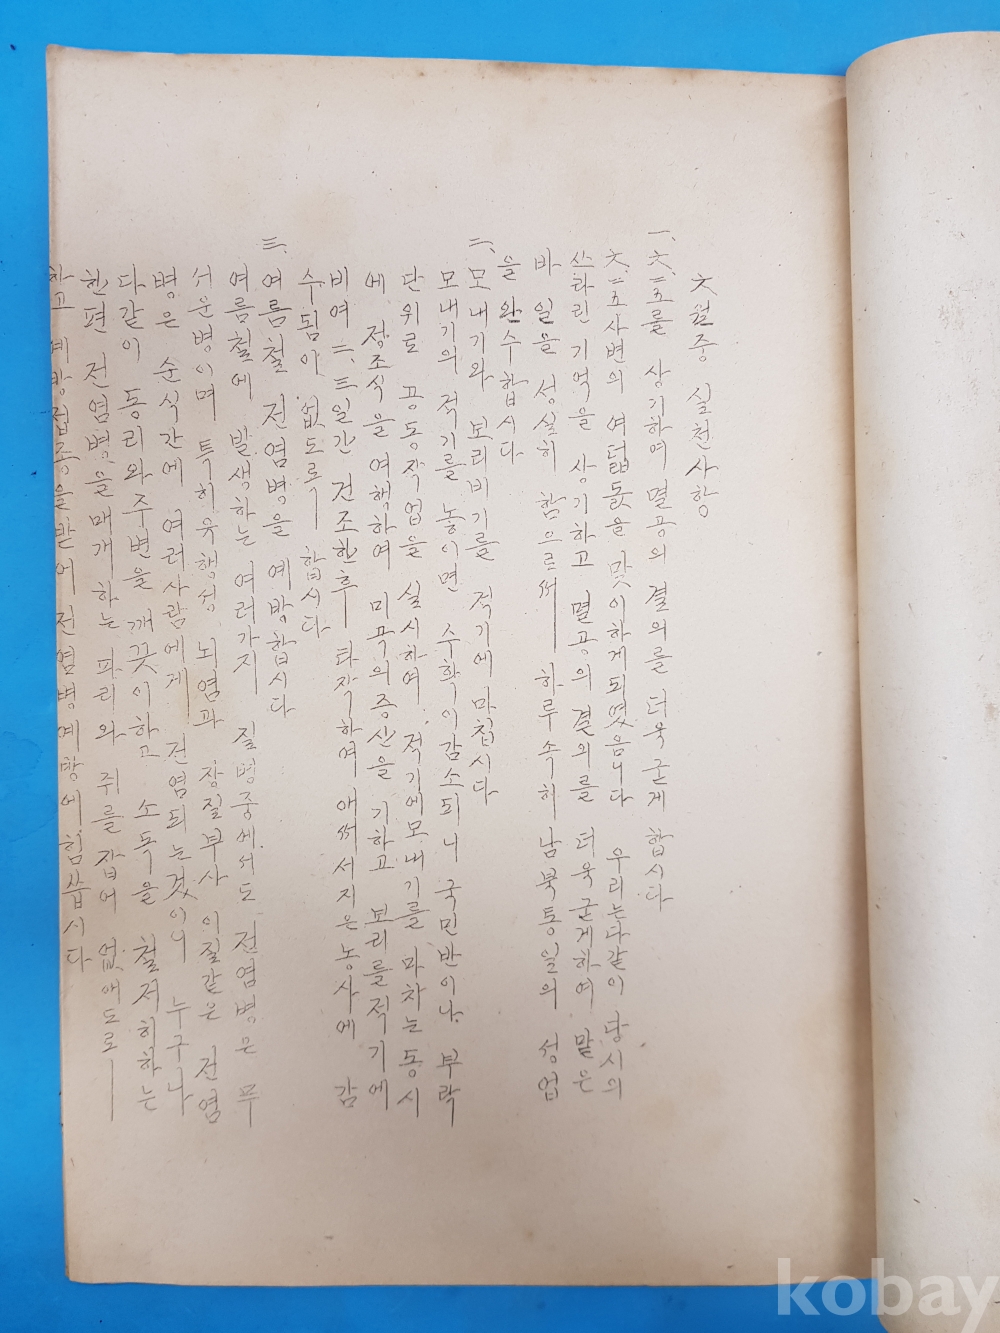 六월중 실천사항
一、六·二五를 상기하여 멸공의 결의를 더욱 굳게 합시다
六·二五사변의 여덟돐을 맞이하게되였음니다 우리는다같이 당시의
쓰라린 기억을 상기하고 멸공의 결의를 더욱굳게하여 맡은
바 일을 성실히 함으로써 하루속히 남북통일의 성업
을 완수합시다
二、모내기와 보리비기를 적기에마칩시다
모내기의 적기를 놓이면 수확이감소되니 국민반이나 부락
단위로 공동작업을 실시하여 적기에모내기를 마차는 동시
에 정조식을 여행하여 미곡의증산을 기하고 보리를적기에
비여 二、三일간 건조한후 타작하여 애써서지은농사에 감
수됨이 없도록 합시다
三、여름철 전염병을 예방합시다
여름철에 발생하는 여러가지 질병중에서도 전염병은 무
서운병이며 특히유행성 뇌염과 장질부사 이질같은 전염
병은 순식간에 여러사람에게 전염되는것이니 누구나
다같이 동리와주변을 깨끗이하고 소독을 철저히하는
한편 전염병을매개하는 파리와 쥐를잡어 없애도록
하고 예방접종을받어 전염병예방에힘씁시다
kobay